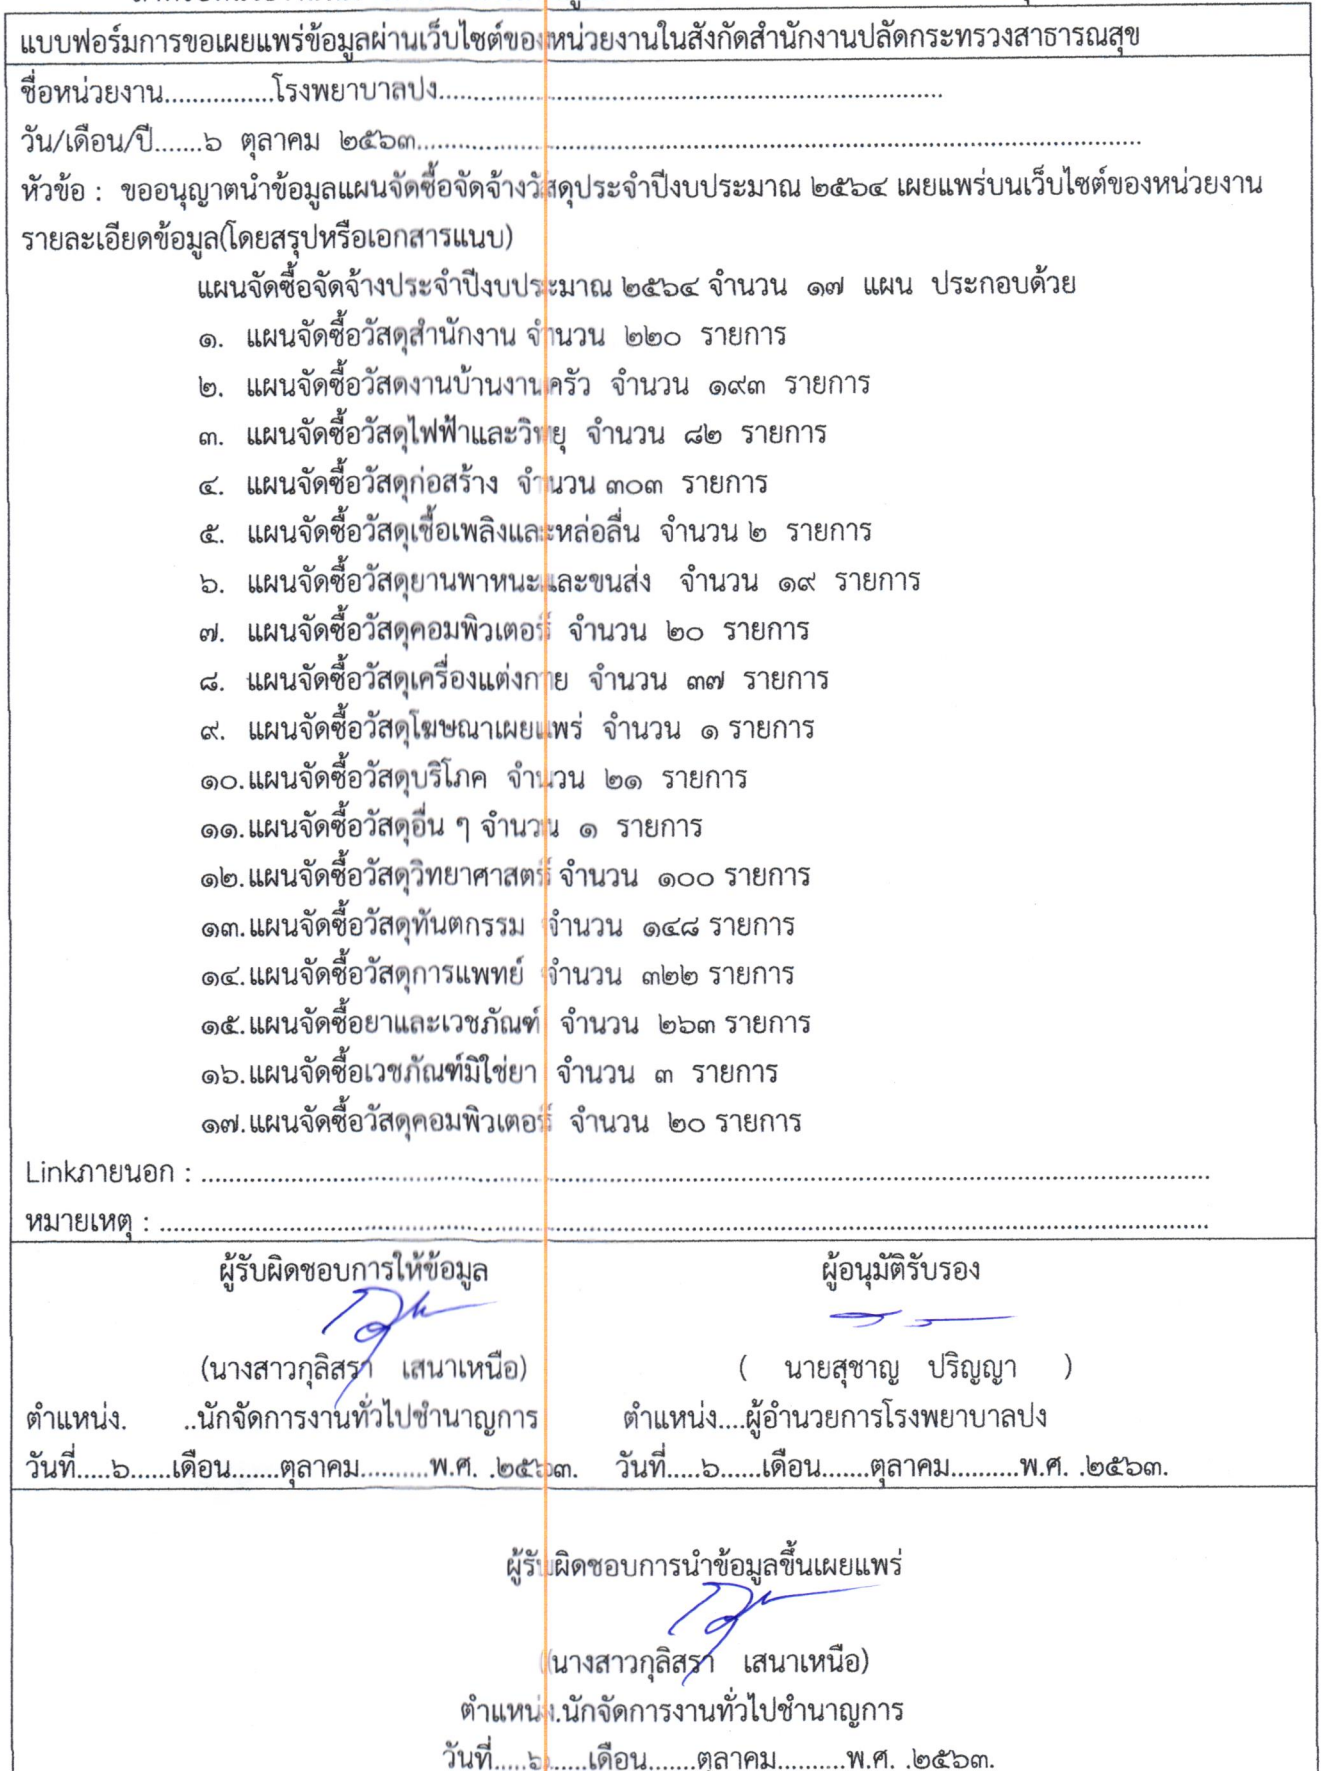 แบบฟอร์มการขอเผยแพร่ข้อมูลผ่านเว็บไซต์ของหน่วยงานในสังกัดสำนักงานปลัดกระทรวงสาธารณสุข
ชื่อหน่วยงาน................โรงพยาบาลปง...........................................................................
วัน/เดือน/ปี.......๖ ตุลาคม ๒๕๖๓.............................................................................................................
หัวข้อ : ขออนุญาตนำข้อมูลแผนจัดซื้อจัดจ้างวัสดุประจำปีงบประมาณ ๒๕๖๔ เผยแพร่บนเว็บไซต์ของหน่วยงาน
รายละเอียดข้อมูล(โดยสรุปหรือเอกสารแนบ)
แผนจัดซื้อจัดจ้างประจำปีงบประมาณ ๒๕๖๔ จำนวน ๑๗ แผน ประกอบด้วย
๑. แผนจัดซื้อวัสดุสำนักงาน จำนวน ๒๒๐ รายการ
๒. แผนจัดซื้อวัสดงานบ้านงานครัว จำนวน ๑๙๓ รายการ
๓. แผนจัดซื้อวัสดุไฟฟ้าและวิทยุ จำนวน ๘๒ รายการ
๔. แผนจัดซื้อวัสดุก่อสร้าง จำนวน ๓๐๓ รายการ
๕. แผนจัดซื้อวัสดุเชื้อเพลิงและหล่อลื่น จำนวน ๒ รายการ
๖. แผนจัดซื้อวัสดุยานพาหนะและขนส่ง จำนวน ๑๙ รายการ
๗. แผนจัดซื้อวัสดุคอมพิวเตอร์ จำนวน ๒๐ รายการ
๘. แผนจัดซื้อวัสดุเครื่องแต่งกาย จำนวน ๓๗ รายการ
๙. แผนจัดซื้อวัสดุโฆษณาเผยแพร่ จำนวน ๑ รายการ
๑๐.แผนจัดซื้อวัสดุบริโภค จำนวน ๒๑ รายการ
๑๑.แผนจัดซื้อวัสดุอื่น ๆ จำนวน ๑ รายการ
๑๒.แผนจัดซื้อวัสดุวิทยาศาสตร์ จำนวน ๑๐๐ รายการ
๑๓.แผนจัดซื้อวัสดุทันตกรรม จำนวน ๑๔๘ รายการ
๑๔.แผนจัดซื้อวัสดุการแพทย์ จำนวน ๓๒๒ รายการ
๑๕.แผนจัดซื้อยาและเวชภัณฑ์ จำนวน ๒๖๓ รายการ
๑๖.แผนจัดซื้อเวชภัณฑ์มิใช่ยา จำนวน ๓ รายการ
๑๗.แผนจัดซื้อวัสดุคอมพิวเตอร์ จำนวน ๒๐ รายการ
Linkภายนอก : ......................................................................................................................................................
หมายเหตุ : ............................................................................................................................................................
ผู้รับผิดชอบการให้ข้อมูล ผู้อนุมัติรับรอง
(นางสาวกุลิสรา เสนาเหนือ) ( นายสุชาญ ปริญญา )
ตำแหน่ง. ..นักจัดการงานทั่วไปชำนาญการ ตำแหน่ง....ผู้อำนวยการโรงพยาบาลปง
วันที่.....๖......เดือน.......ตุลาคม..........พ.ศ. .๒๕๖๓. วันที่.....๖......เดือน.......ตุลาคม..........พ.ศ. .๒๕๖๓.
ผู้รับผิดชอบการนำข้อมูลขึ้นเผยแพร่
(นางสาวกุลิสรา เสนาเหนือ)
ตำแหน่ง.นักจัดการงานทั่วไปชำนาญการ
วันที่.....๖......เดือน.......ตุลาคม..........พ.ศ. .๒๕๖๓.